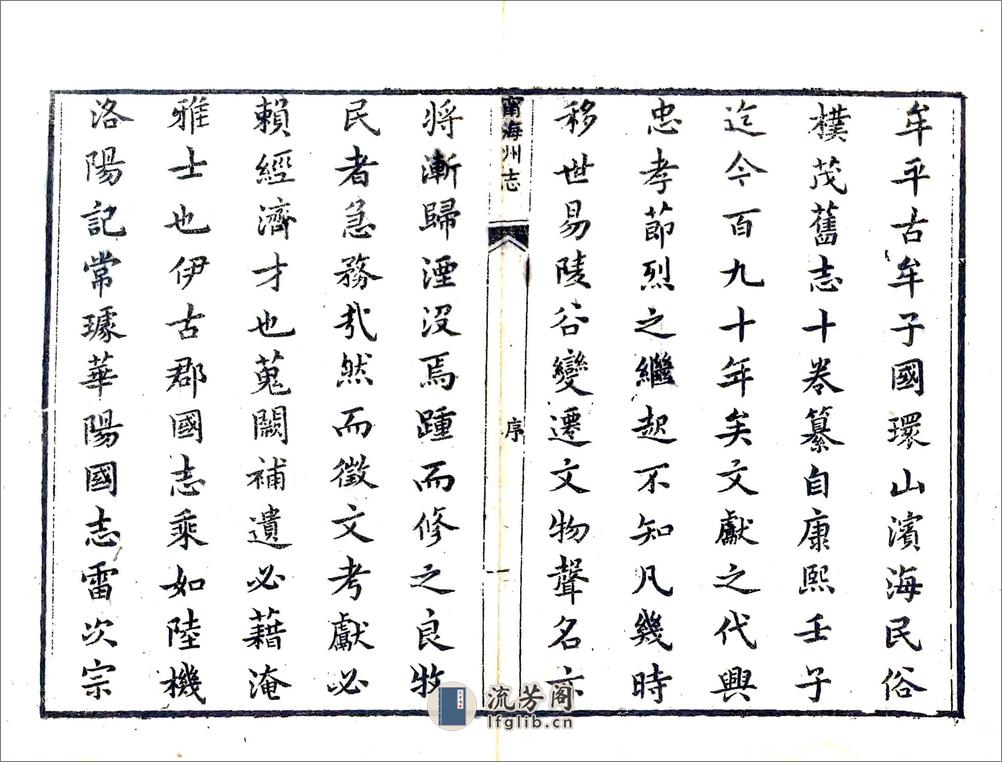 牟平古牟子國環山濱海民俗
樸茂舊志十卷纂自康熙壬子
迄今百九十年矣文獻之代興
忠孝節烈之繼起不知凡幾時
移世易陵谷變遷文物聲名亦
甯海州志
序
一
將漸歸湮沒焉踵而修之良牧
民者急務哉然而徵文考獻必
賴經濟才也蒐闕補遺必藉淹
雅士也伊古郡國志乘如陸機
洛陽記常璩華陽國志雷次宗
流芳阁
lfglib.cn